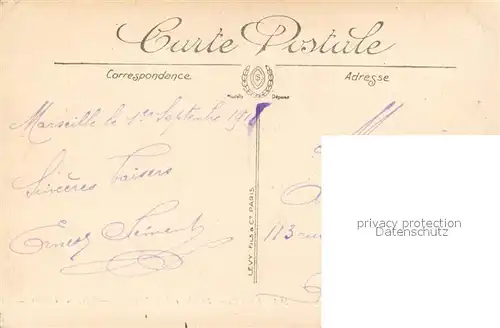 Carte Postale
Correspondance
Adresse
Modèle Déposé
Marseille le 1er Septembre 1918
Sincères baisers
Ernest
LEVY FILS & Cie PARIS
113 rue
privacy protection
Datenschutz